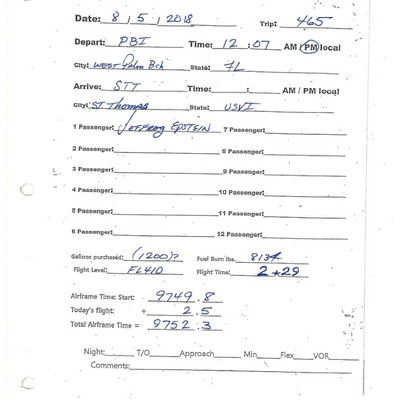 Date: 8 / 5 / 2018 Trip: 465
Depart: PBI Time: 12 : 07 AM / PM local
City: WEST Palm Bch State: FL
Arrive: STT Time: : AM / PM local
City: ST. Thomas State: USVI
1 Passenger: Jeffrey EPSTEIN 7 Passenger:
2 Passenger: 8 Passenger:
3 Passenger: 9 Passenger:
4 Passenger: 10 Passenger:
5 Passenger: 11 Passenger:
6 Passenger: 12 Passenger:
Gallons purchased: (1200)? Fuel Burn lbs. 8134
Flight Level: FL410 Flight Time: 2 + 29
Airframe Time: Start: 9749.8
Today's flight: + 2.5
Total Airframe Time = 9752.3
Night: T/O Approach Min Flex VOR
Comments: